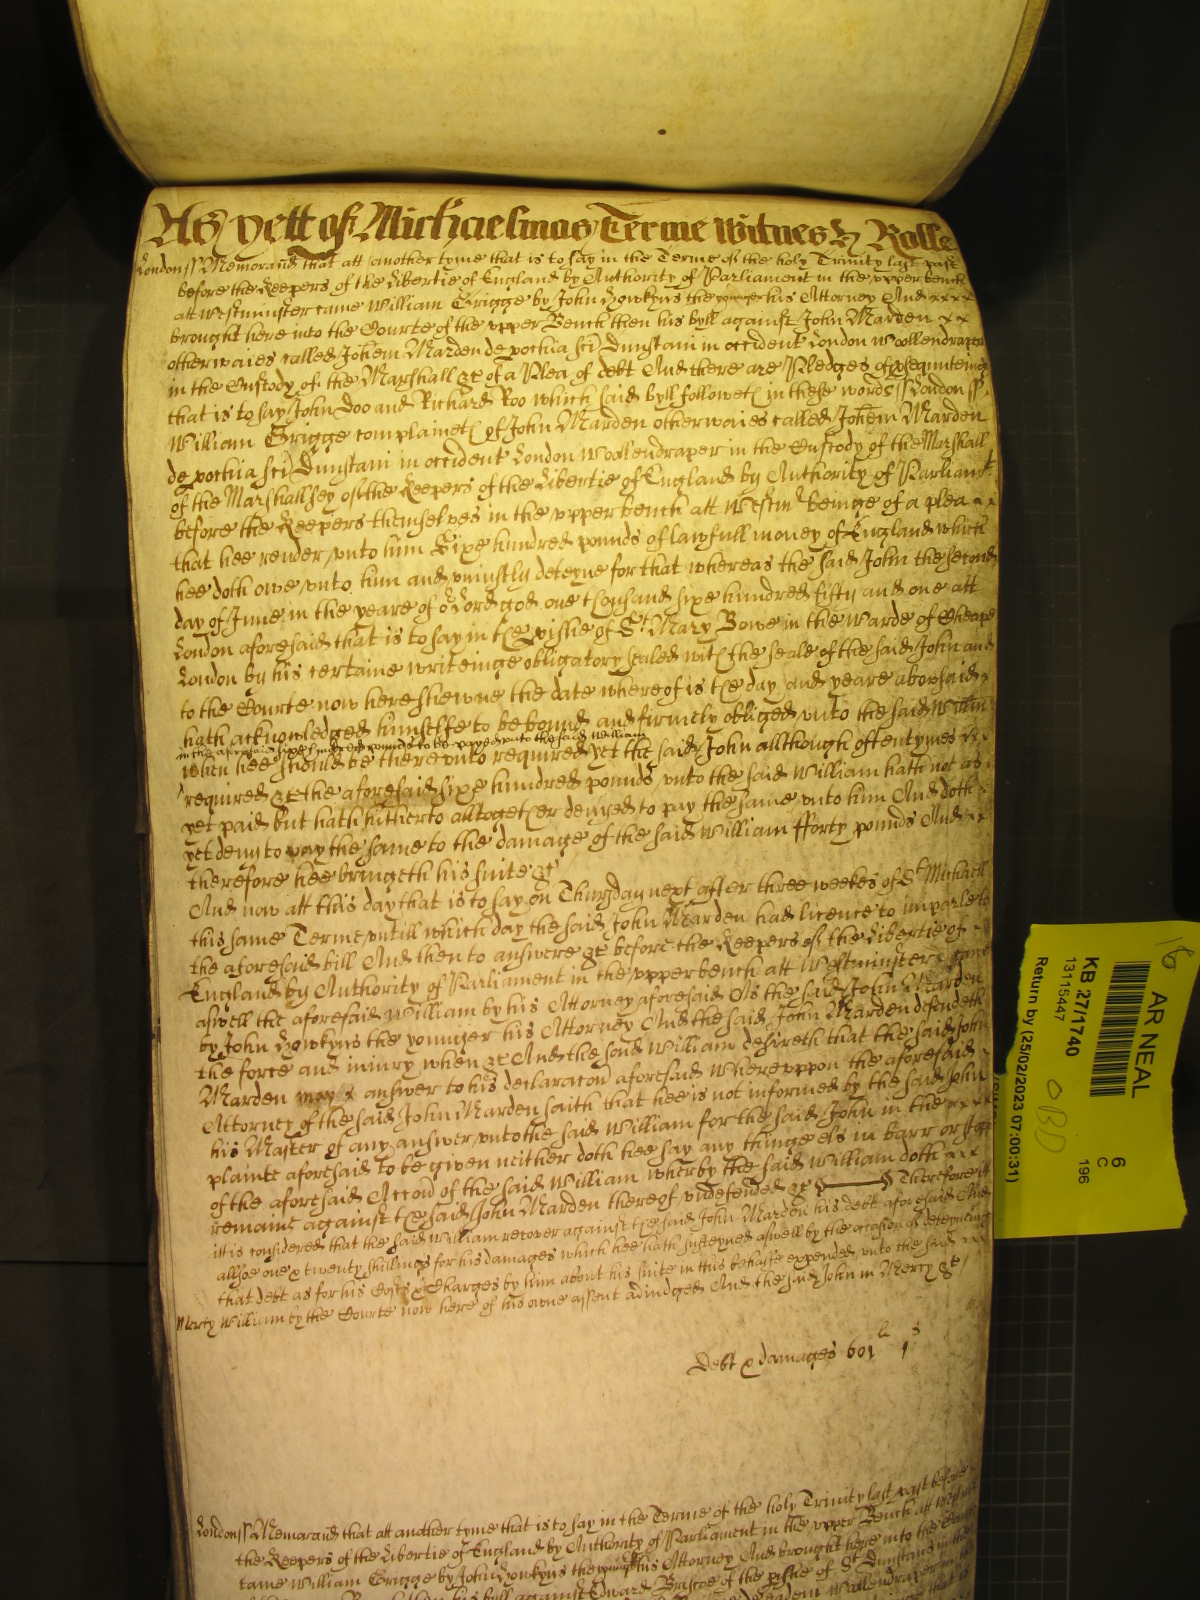 As yett of Michaelmas Terme Witnes H Rolle
London ss Memorand that att another tyme that is to say in the Terme of the holy Trinity last past
before the Keepers of the Libertie of England by Authority of Parliament in the upper bench
att Westminster came William Grigge by John Howkyns the younger his Attorney And xxxx
brought here into the Courte of the upper Bench then his byll against John Marden xx
otherwaies called Johem Marden de pochia sci Dunstani in occident London Woollendraper
in the Custody of the Marshall &c of a Plea of debt And there are Pledges of
that is to say John Doo and Richard Roo which said byll followeth in these words ss London ss
William Grigge complaineth of John Marden otherwaies called Johem Marden
de pochia sci Dunstani in occident London Woollendraper in the Custody of the Marshall
of the Marshallsey of the Keepers of the Libertie of England by Authority of Parliamt
before the Keepers themselves in the upper bench att Westm beinge of a plea xx
that hee render unto him Sixe hundred pounds of lawfull money of England which
hee doth owe unto him and uniustly deteyne for that whereas the said John the second
day of June in the yeare of or Lord god one thousand sixe hundred fifty and one att
London aforesaid that is to say in the pishe of St Mary Bowe in the Warde of Cheape
London by his certaine writeinge obligatory sealed with the seale of the said John and
to the Courte now here shewne the date whereof is the day and yeare abovsaid x
hath acknowledged himselfe to be bound and firmely obliged unto the said Willm
in the aforesaid sixe hundred pounds to be payed unto the said William
when hee should be thereunto required yet the said John allthough oftentymes xx
required &c the aforesaid sixe hundred pounds unto the said William hath not as
yet paid but hath hitherto alltogether denyed to pay the same unto him And doth
yet deny to pay the same to the damage of the said William fforty pounds And xx
therefore hee bringeth his suite &c
And now att this day that is to say on Thursday next after three weekes of St Michaell
this same Terme untill which day the said John Marden had licence to imparle to
the aforesaid bill And then to answere &c before the Keepers of the Libertie of
England by Authority of Parliament in the upper bench att Westminster came
aswell the aforesaid William by his Attorney aforesaid As the said John Marden
by John Howkyns the younger his Attorney And the said John Marden defendeth
the force and iniury when &c And the said William desireth that the said John
Marden may x answer to his declaracon aforesaid Whereuppon the aforesaid
Attorney of the said John Marden saith that hee is not informed by the said John
his Master of any answer unto the said William for the said John in the xxxx
plainte aforesaid to be given neither doth hee say any thinge els in barr or stopp
of the aforesaid Accon of the said William wherby the said William doth xxx
remaine against the said John Marden thereof undefended &c Therefore
itt is considered that the said William recover against the said John Marden his debt aforesaid And
allsoe one & twenty shillings for his damages which hee hath susteyned aswell by the occasion of deteyninge
that debt as for his Costs & Charges by him about his suite in this behalfe expended unto the said xxx
Mercy William by the Courte now here of his owne assent adiudged And the said John in Mercy &c
Debt & damages 601li 1s
London ss Memorand that att another tyme that is to say in the Terme of the holy Trinity last past before
the Keepers of the Libertie of England by Authority of Parliament in the upper Bench att
came William Grigge by John Howkyns the younger his Attorney And brought here into the
his byll against Edward Briscoe of the pishe of St Dunstans
Woollendraper
AR NEAL
KB 27/1740
13115447
Return by (25/02/2023 07:00:31)
6
C
196